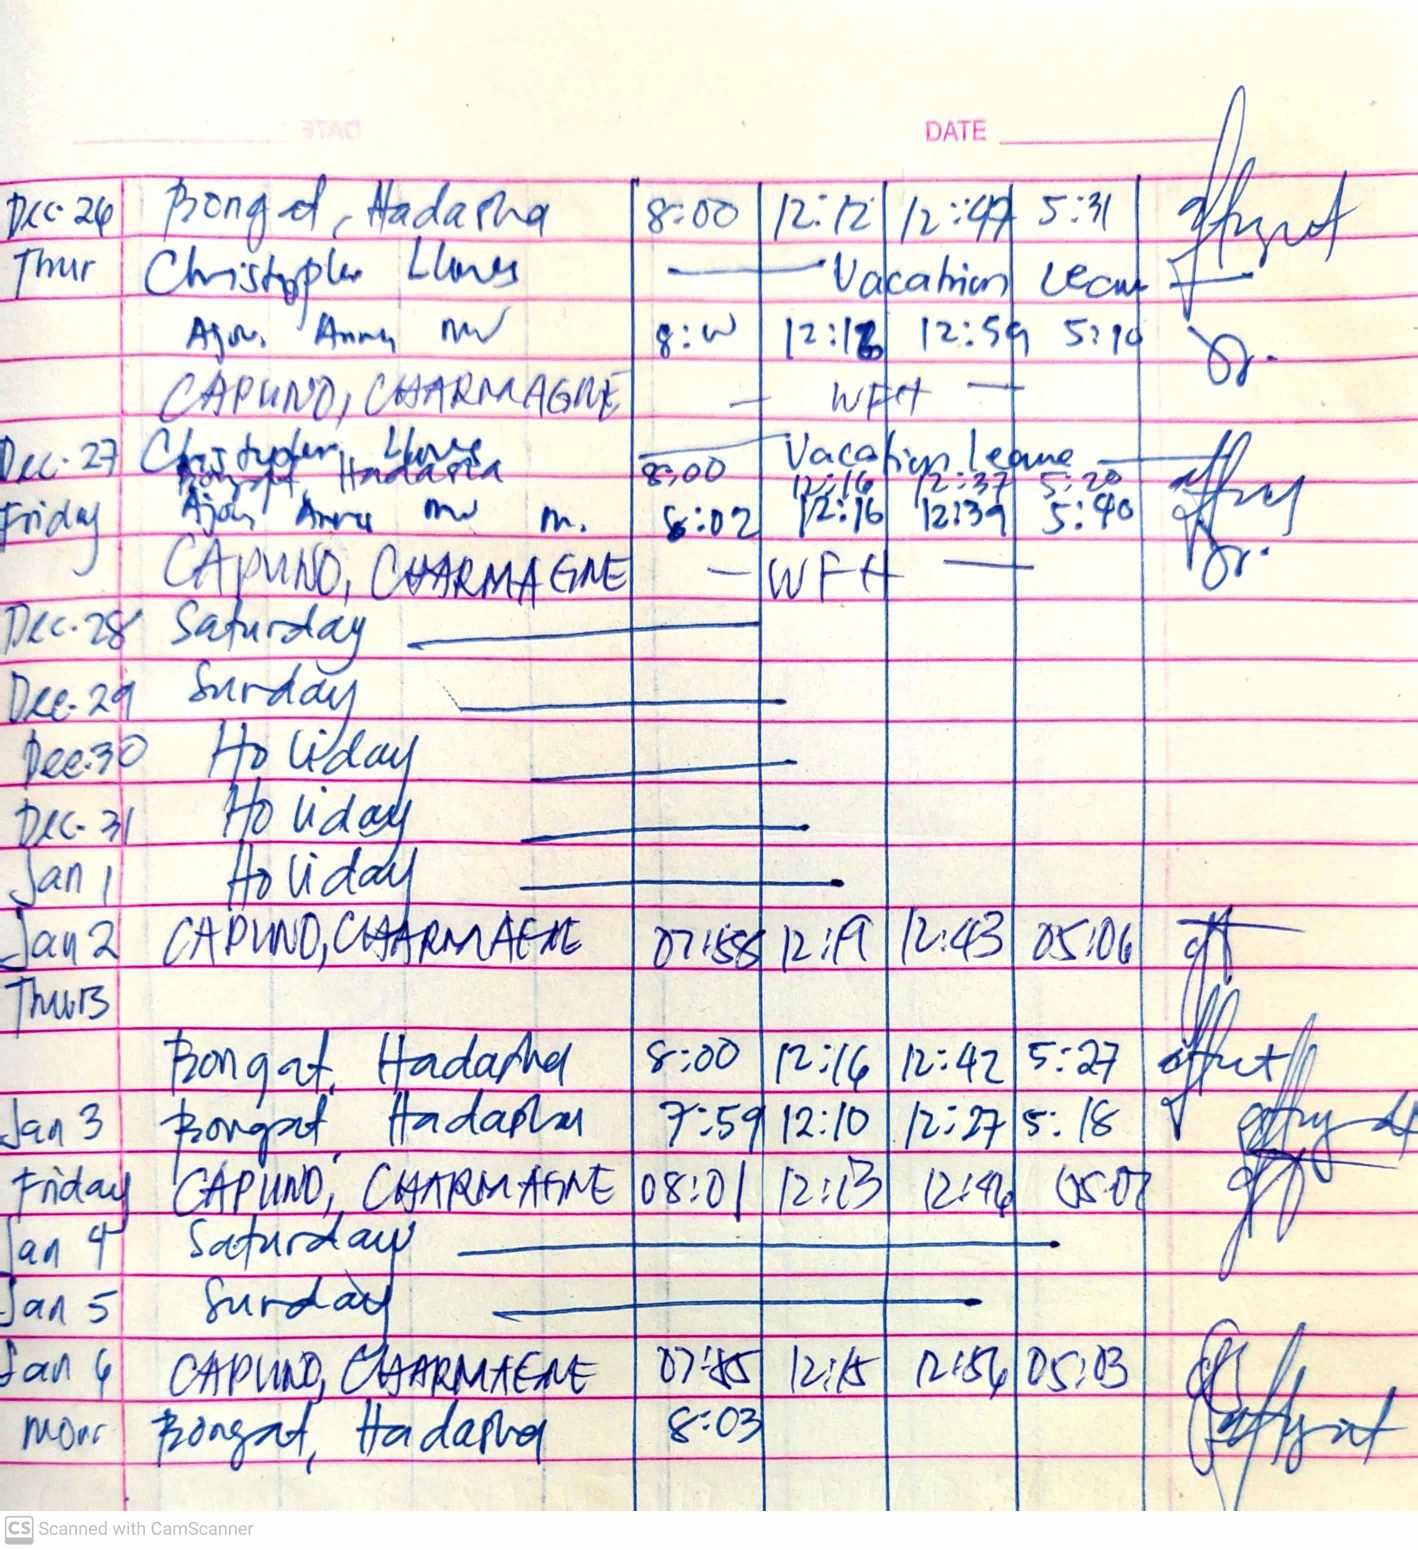 DATE
Dec. 26 Bongat, Hadasha 8:00 12:12 12:47 5:31
Thur Christopher Llanes Vacation Leave
Ajou, Anna 12:59 5:10
CAPUNO, CHARMAGNE — WFH —
Dec. 27 Christopher Llanes Vacation Leave
Bongat, Hadasha 8:00 12:16 12:37 5:20
Friday Ajou, Anna m. 8:02 12:16 12:39 5:40
CAPUNO, CHARMAGNE — WFH —
Dec. 28 Saturday
Dec. 29 Sunday
Dec. 30 Holiday
Dec. 31 Holiday
Jan 1 Holiday
Jan 2 CAPUNO, CHARMAGNE 07:58 12:19 12:43 05:06
Thurs
Bongat, Hadasha 8:00 12:16 12:42 5:27
Jan 3 Bongat, Hadasha 7:59 12:10 12:27 5:18
Friday CAPUNO, CHARMAGNE 08:01 12:13 12:46 05:07
Jan 4 Saturday
Jan 5 Sunday
Jan 6 CAPUNO, CHARMAGNE 07:55 12:15 12:56 05:03
Mon Bongat, Hadasha 8:03
CS Scanned with CamScanner